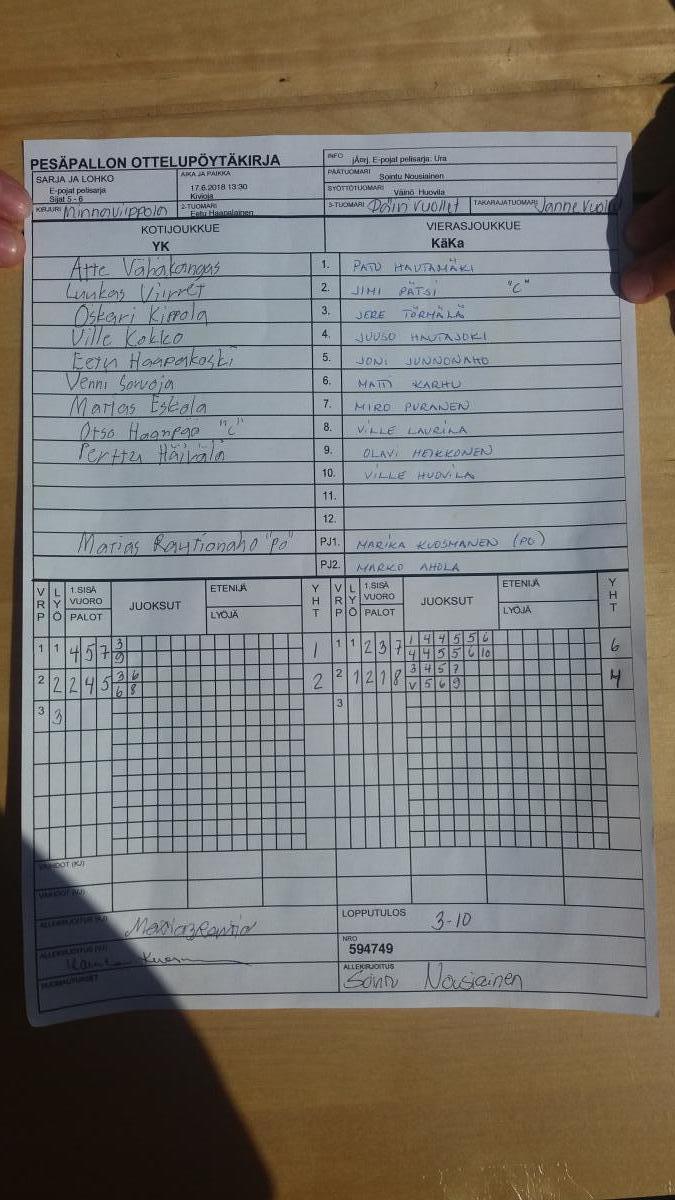 PESÄPALLON OTTELUPÖYTÄKIRJA
INFO jÄerj. E-pojat pelisarja: Ura
SARJA JA LOHKO AIKA JA PAIKKA PÄÄTUOMARI Sointu Nousiainen
E-pojat pelisarja 17.6.2018 13:30 SYÖTTÖTUOMARI Väinö Huovila
Sijat 5 - 6 Kivioja
KIRJURI Minna Viippola 2-TUOMARI Eetu Haapalainen 3-TUOMARI TAKARAJATUOMARI Janne
KOTIJOUKKUE VIERASJOUKKUE
YK KäKa
Atte Vähäkangas 1. PATU HAUTAMÄKI
Luukas Viirret 2. JIMI PÄTSI "C"
Oskari Kippola 3. JERE TÖRMÄLÄ
Ville Kokko 4. JUUSO HAUTAJOKI
Eetu Haapakoski 5. JONI JUNNONAHO
Venni Sorvoja 6. MATTI KARHU
Matias Eskola 7. MIRO PURANEN
Otso Haanpää "C" 8. VILLE LAURILA
Perttu Häivälä 9. OLAVI HEIKKONEN
10. VILLE HUOVILA
11.
12.
Matias Rautionaho "po" PJ1. MARIKA KUOSMANEN (PO)
PJ2. MARKO AHOLA
VRP LYÖ 1.SISÄ VUORO PALOT JUOKSUT ETENIJÄ LYÖJÄ YHT VRP LYÖ 1.SISÄ VUORO PALOT JUOKSUT ETENIJÄ LYÖJÄ YHT
1 1 4 5 7 3 1 1 1 2 3 7 1 4 4 5 5 6 6
9 4 4 5 5 6 10
2 2 2 4 5 3 6 2 2 1 2 1 8 3 4 5 7 4
6 8 V 5 6 9
3 3 3
VAIHDOT (KJ)
VAIHDOT (VJ)
ALLEKIRJOITUS (KJ) LOPPUTULOS 3-10
ALLEKIRJOITUS (VJ) NRO 594749
HUOMAUTUKSET ALLEKIRJOITUS Sointu Nousiainen